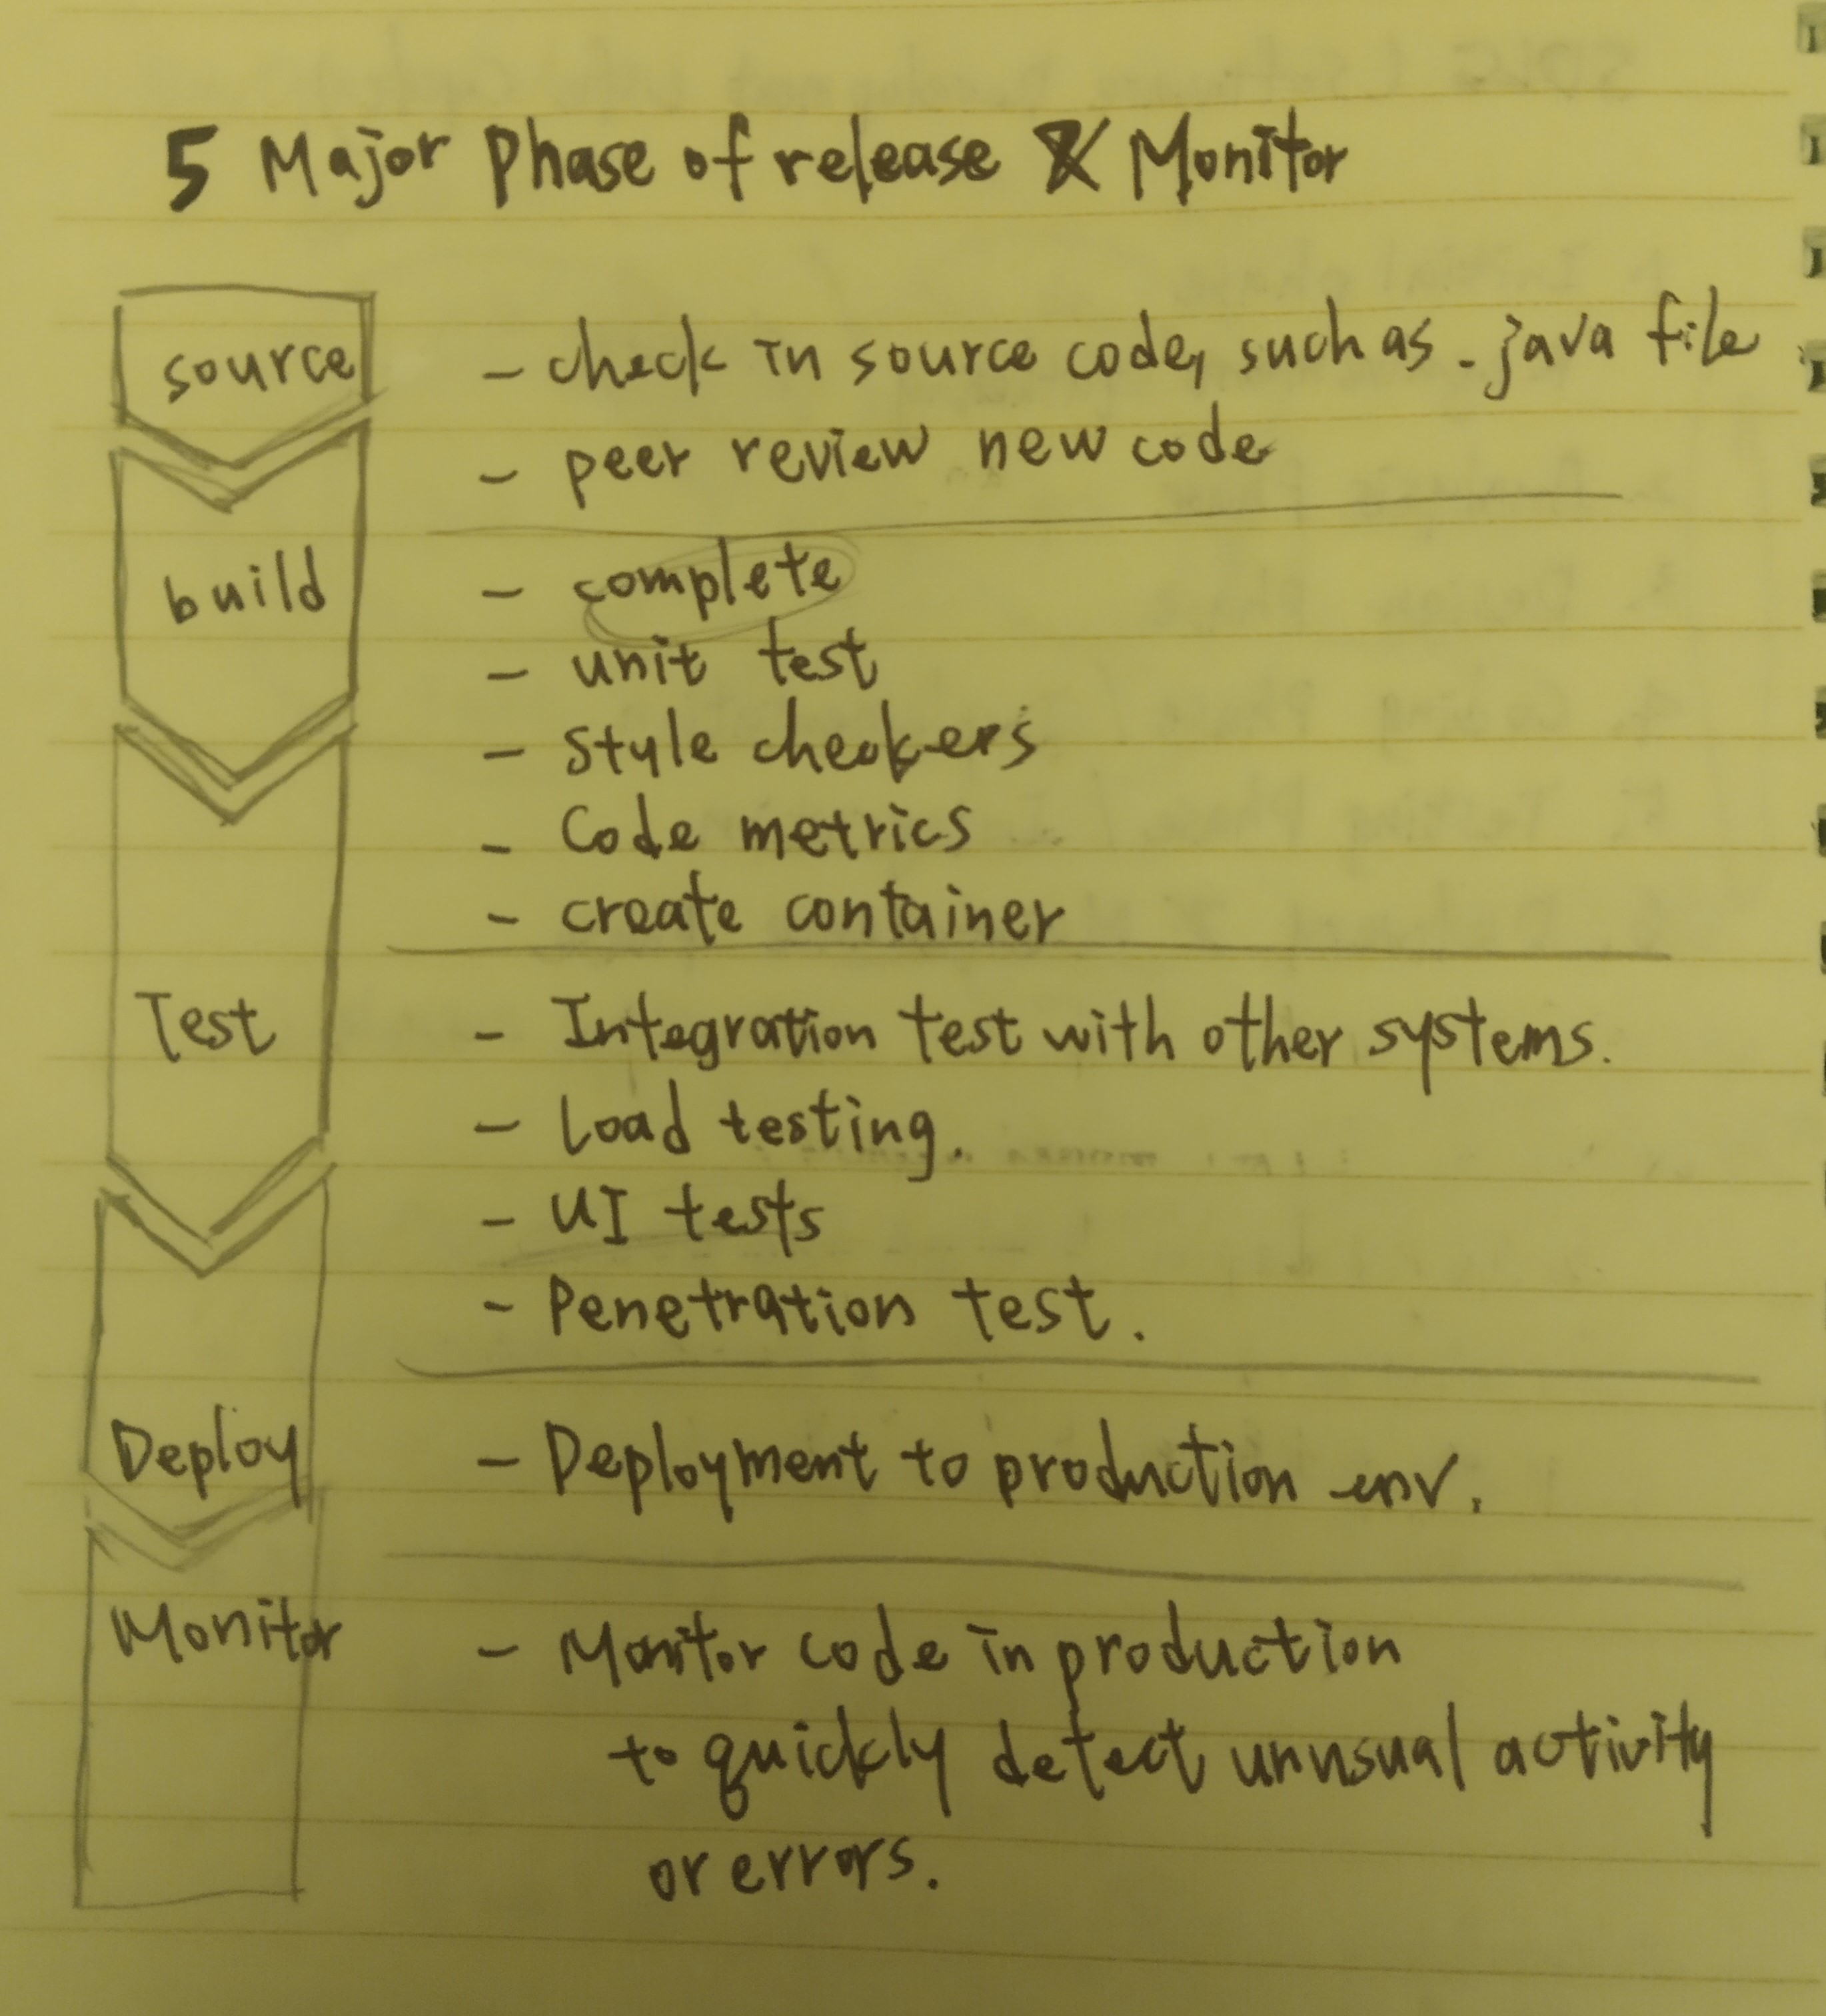 5 Major Phase of release & Monitor
source
- check in source code, such as .java file
- peer review new code
build
- complete
- unit test
- style checkers
- Code metrics
- create container
Test
- Integration test with other systems.
- Load testing.
- UI tests
- Penetration test.
Deploy
- Deployment to production env.
Monitor
- Monitor code in production
to quickly detect unusual activity
or errors.